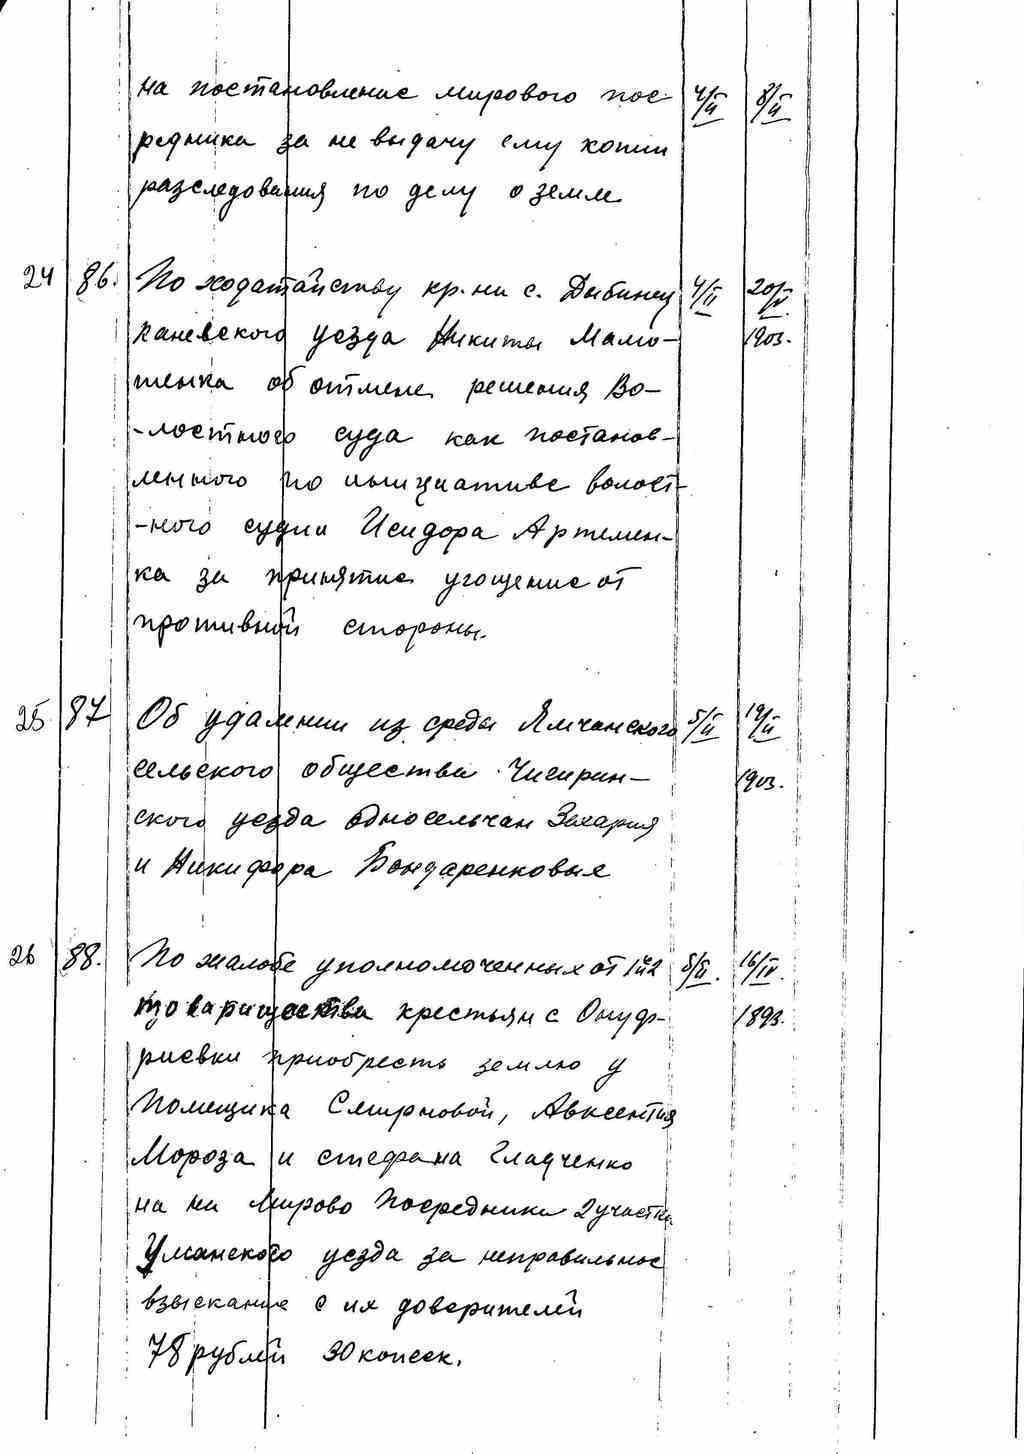 на постановление мирового пос- 4/II 8/II
редника за не выдачу ему копии
разследования по делу о земле
24 86. По ходатайству кр-на с. Дыбинец 4/II 20/V
Каневского уезда Никиты Мамо- 1903.
тенка об отмене решения Во-
-лостного суда как постанов-
ленного по инициативе волост-
-ного судьи Исидора Артемен-
ка за принятие угощение от
противной стороны.
25 87 Об удалении из среды Ямчанского 5/II 19/II
сельского общества Чигирин- 1903.
ского уезда односельчан Захария
и Никифора Бондаренковые
26 88. По жалобе уполномоченных от 1й 2 5/II. 16/IV.
товарищества крестьян с Онуф- 1893.
риевки приобресть землю у
помещика Смирновой, Авксентия
Мороза и Стефана Гладченко
на Мирово Посредника 2 участка
Уманского уезда за неправильное
взыскание с их доверителей
78 рублей 30 копеек.